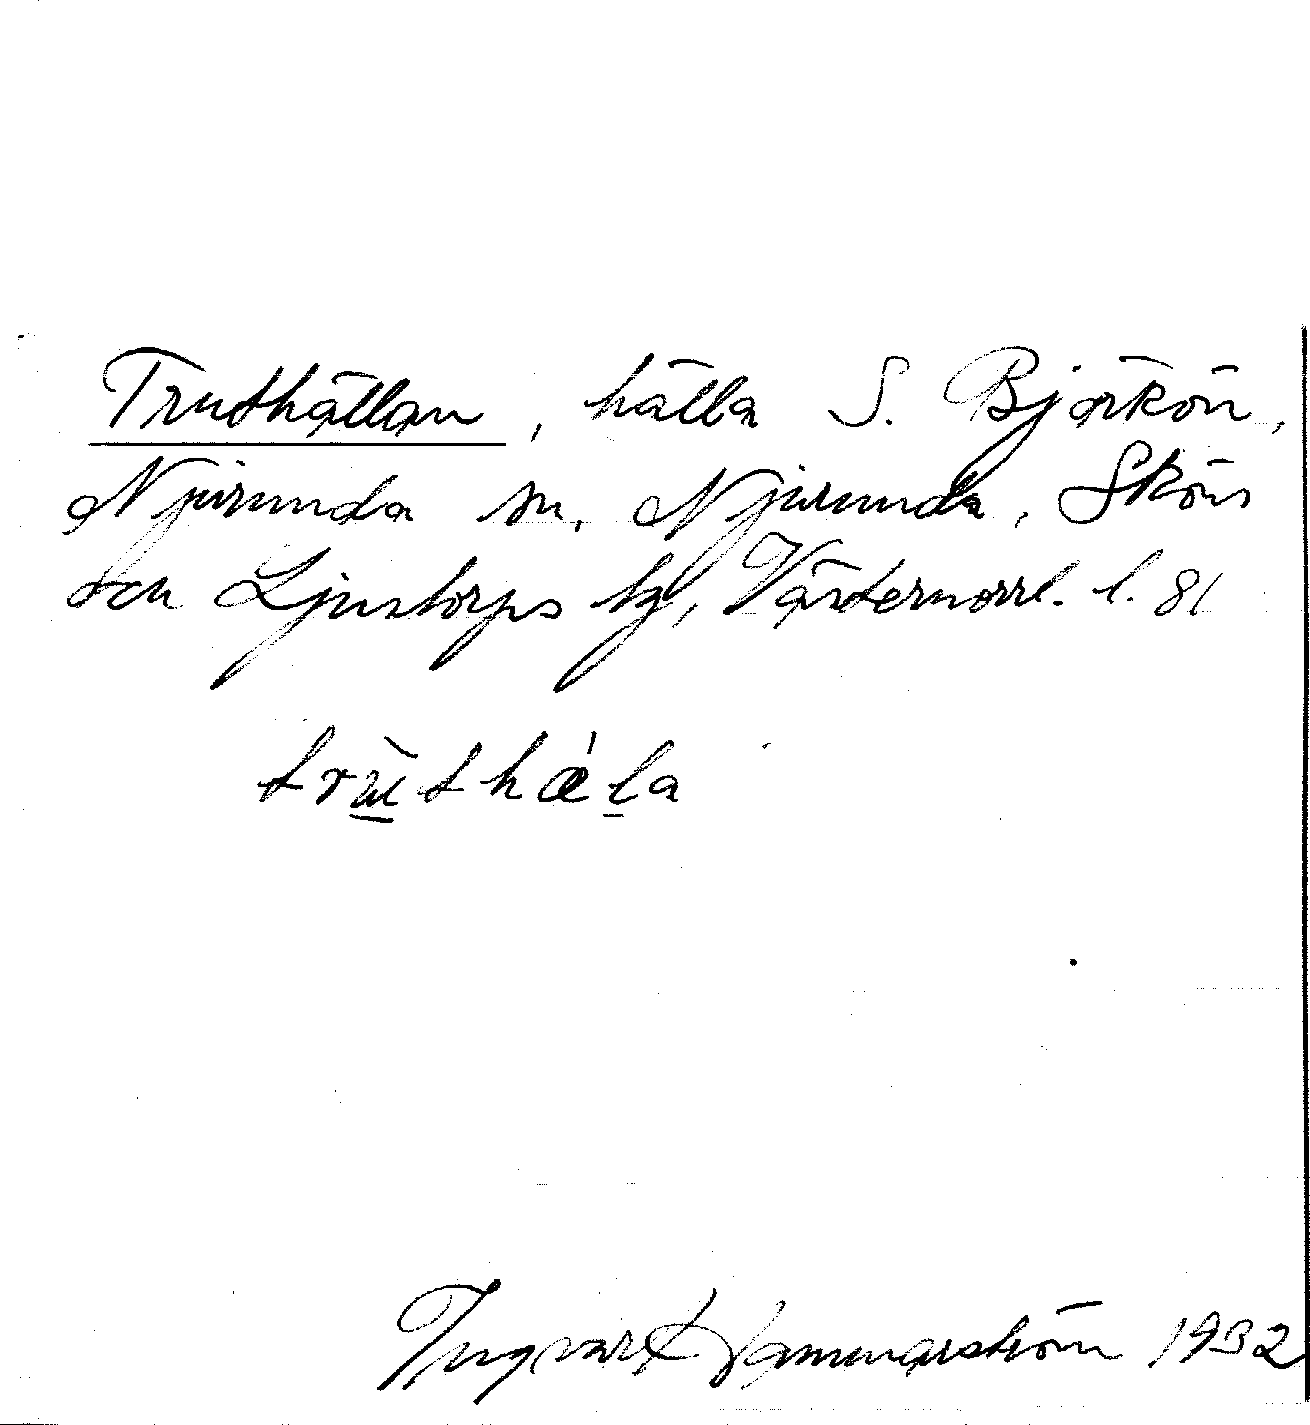 Truthällan, hälla S. Björkön,
Njurunda sn. Njurunda, Sköns
och Ljustorps tg, Västernorrl. l. 81
trùthǽla
Ingvar Hammarström 1932